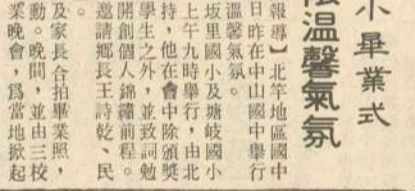 小畢業式
溫馨氣氛
報導】北竿地區國中
日昨在中山國中舉行
溫馨氣氛。
坂里國小及塘岐國小
上午九時舉行，由北
持，他在會中除頒獎
學生之外，並致詞勉
開創個人錦繡前程。
邀請鄉長王詩乾、民
。
及家長合拍畢業照，
動。晚間，並由三校
業晚會，爲當地掀起